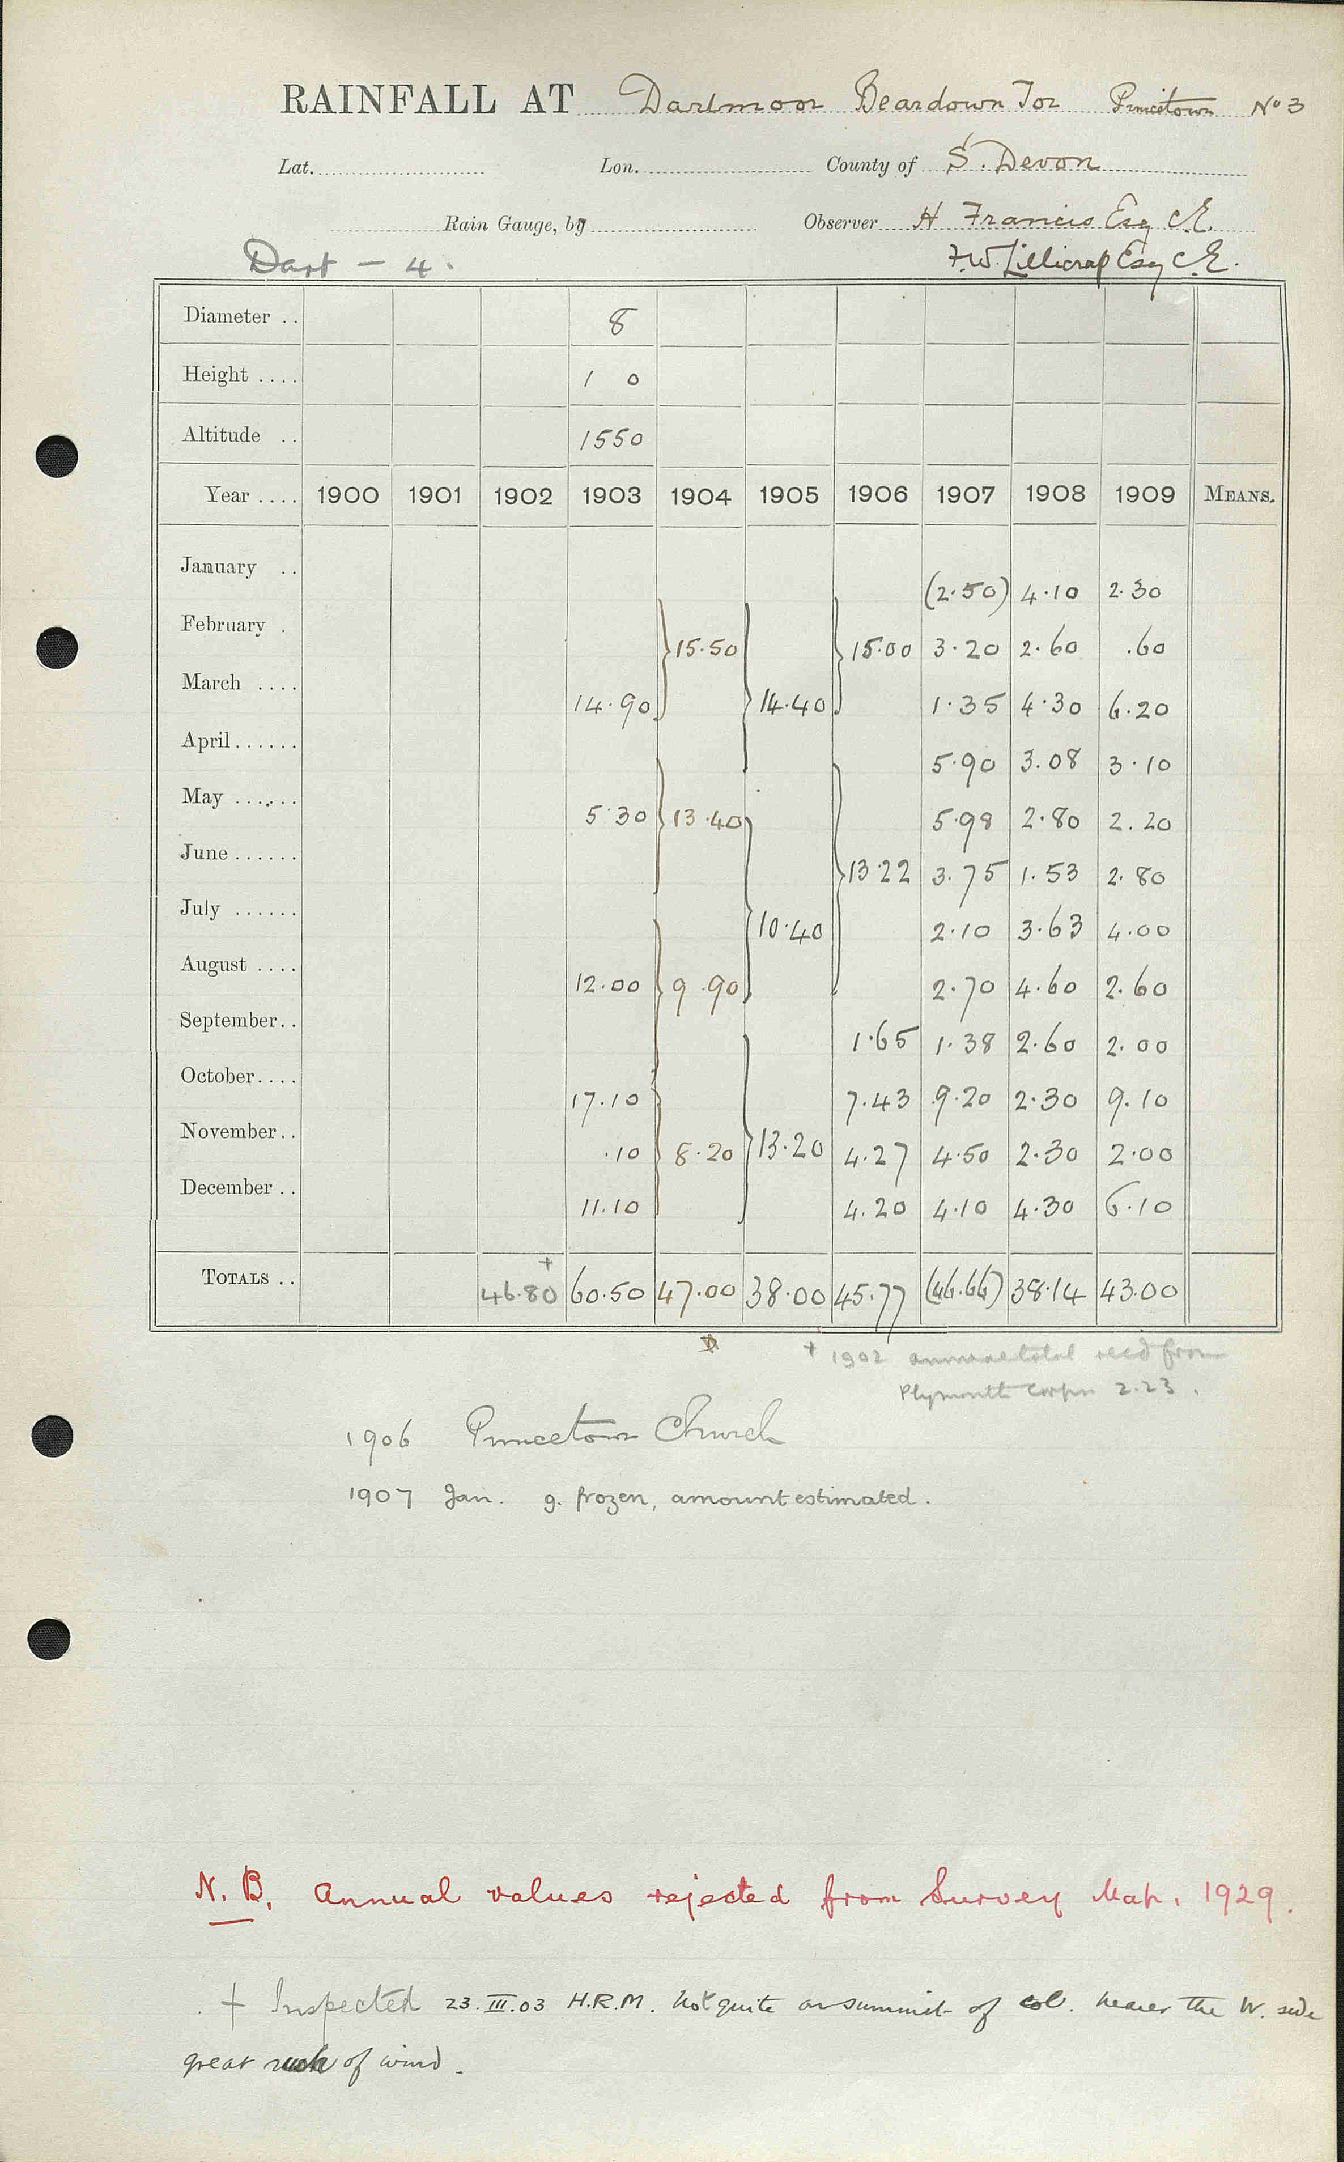 RAINFALL AT Dartmoor Beardown Tor Princetown No 3
Lat. Lon. County of S. Devon
Rain Gauge, by Observer H Francis Esq C.E.
Dart - 4. F.W. Lillicrap Esq C.E.
Diameter .. 8
Height .... 1 0
Altitude .. 1550
Year .... 1900 1901 1902 1903 1904 1905 1906 1907 1908 1909 MEANS.
January .. (2.50) 4.10 2.30
February . 15.50 15.00 3.20 2.60 .60
March .... 14.90 14.40 1.35 4.30 6.20
April...... 5.90 3.08 3.10
May ...... 5.30 13.40 5.98 2.80 2.20
June ...... 13.22 3.75 1.53 2.80
July ...... 10.40 2.10 3.63 4.00
August .... 12.00 9.90 2.70 4.60 2.60
September.. 1.65 1.38 2.60 2.00
October.... 17.10 7.43 9.20 2.30 9.10
November.. .10 8.20 13.20 4.27 4.50 2.30 2.00
December .. 11.10 4.20 4.10 4.30 6.10
TOTALS .. 46.80 + 60.50 47.00 38.00 45.77 (46.66) 38.14 43.00
+ 1902 annual total recd from
Plymouth Corpn 2.23.
1906 Princetown Church
1907 Jan. g. frozen, amount estimated.
N.B. Annual values rejected from Survey Map. 1929.
† Inspected 23.III.03 H.R.M. Not quite on summit of col. nearer the W. side
great rush of wind.